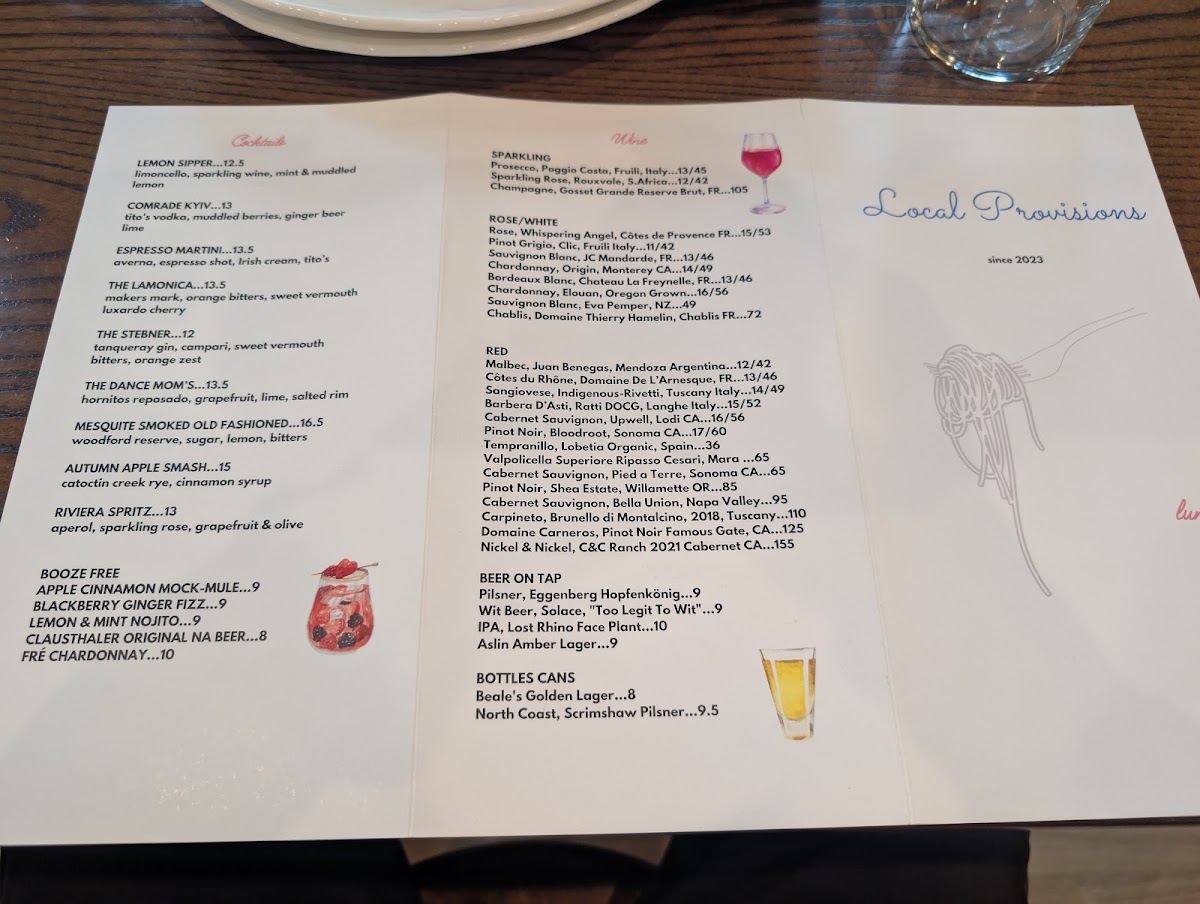 Cocktails
LEMON SIPPER...12.5
limoncello, sparkling wine, mint & muddled
lemon
COMRADE KYIV...13
tito's vodka, muddled berries, ginger beer
lime
ESPRESSO MARTINI...13.5
averna, espresso shot, Irish cream, tito's
THE LAMONICA...13.5
makers mark, orange bitters, sweet vermouth
luxardo cherry
THE STEBNER...12
tanqueray gin, campari, sweet vermouth
bitters, orange zest
THE DANCE MOM'S...13.5
hornitos reposado, grapefruit, lime, salted rim
MESQUITE SMOKED OLD FASHIONED...16.5
woodford reserve, sugar, lemon, bitters
AUTUMN APPLE SMASH...15
catoctin creek rye, cinnamon syrup
RIVIERA SPRITZ...13
aperol, sparkling rose, grapefruit & olive
BOOZE FREE
APPLE CINNAMON MOCK-MULE...9
BLACKBERRY GINGER FIZZ...9
LEMON & MINT NOJITO...9
CLAUSTHALER ORIGINAL NA BEER...8
FRÉ CHARDONNAY...10
Wine
SPARKLING
Prosecco, Poggio Costa, Fruili, Italy...13/45
Sparkling Rose, Rouxvale, S.Africa...12/42
Champagne, Gosset Grande Reserve Brut, FR...105
ROSE/WHITE
Rose, Whispering Angel, Côtes de Provence FR...15/53
Pinot Grigio, Clic, Fruili Italy...11/42
Sauvignon Blanc, JC Mandarde, FR...13/46
Chardonnay, Origin, Monterey CA...14/49
Bordeaux Blanc, Chateau La Freynelle, FR...13/46
Chardonnay, Elouan, Oregon Grown...16/56
Sauvignon Blanc, Eva Pemper, NZ...49
Chablis, Domaine Thierry Hamelin, Chablis FR...72
RED
Malbec, Juan Benegas, Mendoza Argentina...12/42
Côtes du Rhône, Domaine De L'Arnesque, FR...13/46
Sangiovese, Indigenous-Rivetti, Tuscany Italy...14/49
Barbera D'Asti, Ratti DOCG, Langhe Italy...15/52
Cabernet Sauvignon, Upwell, Lodi CA...16/56
Pinot Noir, Bloodroot, Sonoma CA...17/60
Tempranillo, Lobetia Organic, Spain...36
Valpolicella Superiore Ripasso Cesari, Mara ...65
Cabernet Sauvignon, Pied a Terre, Sonoma CA...65
Pinot Noir, Shea Estate, Willamette OR...85
Cabernet Sauvignon, Bella Union, Napa Valley...95
Carpineto, Brunello di Montalcino, 2018, Tuscany...110
Domaine Carneros, Pinot Noir Famous Gate, CA...125
Nickel & Nickel, C&C Ranch 2021 Cabernet CA...155
BEER ON TAP
Pilsner, Eggenberg Hopfenkönig...9
Wit Beer, Solace, "Too Legit To Wit"...9
IPA, Lost Rhino Face Plant...10
Aslin Amber Lager...9
BOTTLES CANS
Beale's Golden Lager...8
North Coast, Scrimshaw Pilsner...9.5
Local Provisions
since 2023